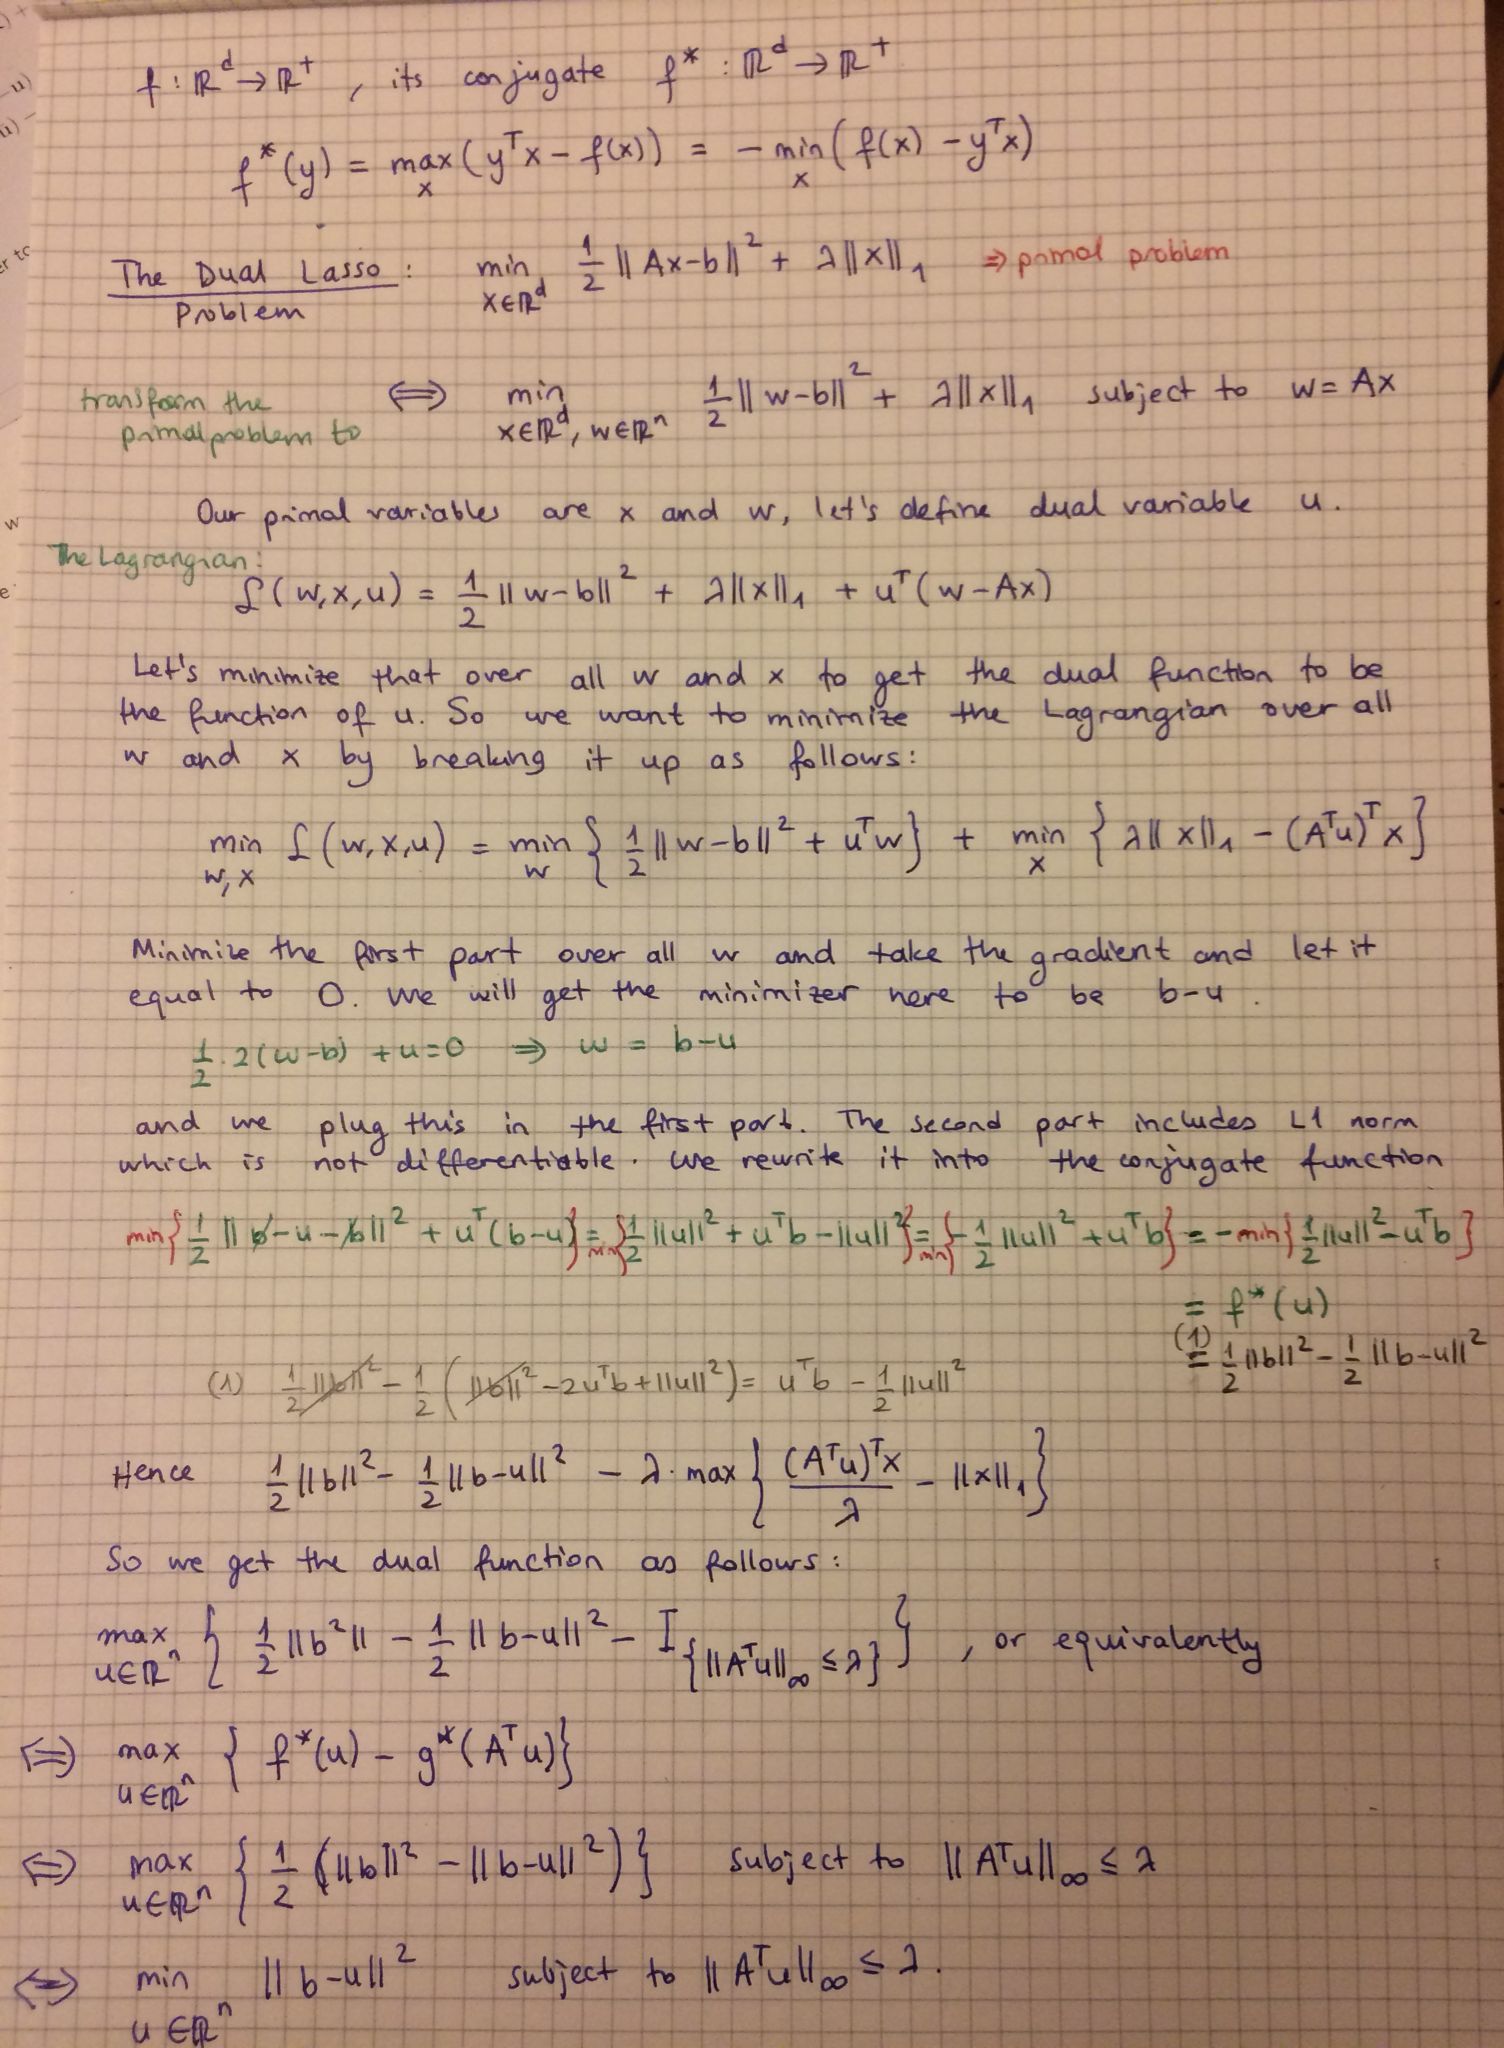 f : ℝᵈ → ℝ⁺ , its conjugate f* : ℝᵈ → ℝ⁺
f*(y) = max_x (yᵀx − f(x)) = − min_x (f(x) − yᵀx)
The Dual Lasso Problem : min_{x∈ℝᵈ} 1/2 ||Ax−b||² + λ||x||₁ ⇒ primal problem
transform the primal problem to ⟺ min_{x∈ℝᵈ, w∈ℝⁿ} 1/2 ||w−b||² + λ||x||₁ subject to w = Ax
Our primal variables are x and w, let's define dual variable u.
The Lagrangian:
ℒ(w,x,u) = 1/2 ||w−b||² + λ||x||₁ + uᵀ(w−Ax)
Let's minimize that over all w and x to get the dual function to be
the function of u. So we want to minimize the Lagrangian over all
w and x by breaking it up as follows:
min_{w,x} ℒ(w,x,u) = min_w { 1/2 ||w−b||² + uᵀw } + min_x { λ||x||₁ − (Aᵀu)ᵀx }
Minimize the first part over all w and take the gradient and let it
equal to 0. We will get the minimizer here to be b−u .
1/2 · 2(w−b) + u = 0 ⇒ w = b−u
and we plug this in the first part. The second part includes L1 norm
which is not differentiable. We rewrite it into the conjugate function
min{ 1/2 ||b−u−b||² + uᵀ(b−u) } = min{ 1/2 ||u||² + uᵀb − ||u||² } = min{ −1/2 ||u||² + uᵀb } = −min{ 1/2 ||u||² − uᵀb }
= f*(u)
(1) = 1/2 ||b||² − 1/2 ||b−u||²
(1) 1/2 ||b||² − 1/2 ( ||b||² − 2uᵀb + ||u||² ) = uᵀb − 1/2 ||u||²
Hence 1/2 ||b||² − 1/2 ||b−u||² − λ · max { (Aᵀu)ᵀx / λ − ||x||₁ }
So we get the dual function as follows :
max_{u∈ℝⁿ} { 1/2 ||b²|| − 1/2 ||b−u||² − I_{{||Aᵀu||∞ ≤ λ}} } , or equivalently
⟺ max_{u∈ℝⁿ} { f*(u) − g*(Aᵀu) }
⟺ max_{u∈ℝⁿ} { 1/2 (||b||² − ||b−u||²) } subject to ||Aᵀu||∞ ≤ λ
⟺ min_{u∈ℝⁿ} ||b−u||² subject to ||Aᵀu||∞ ≤ λ.